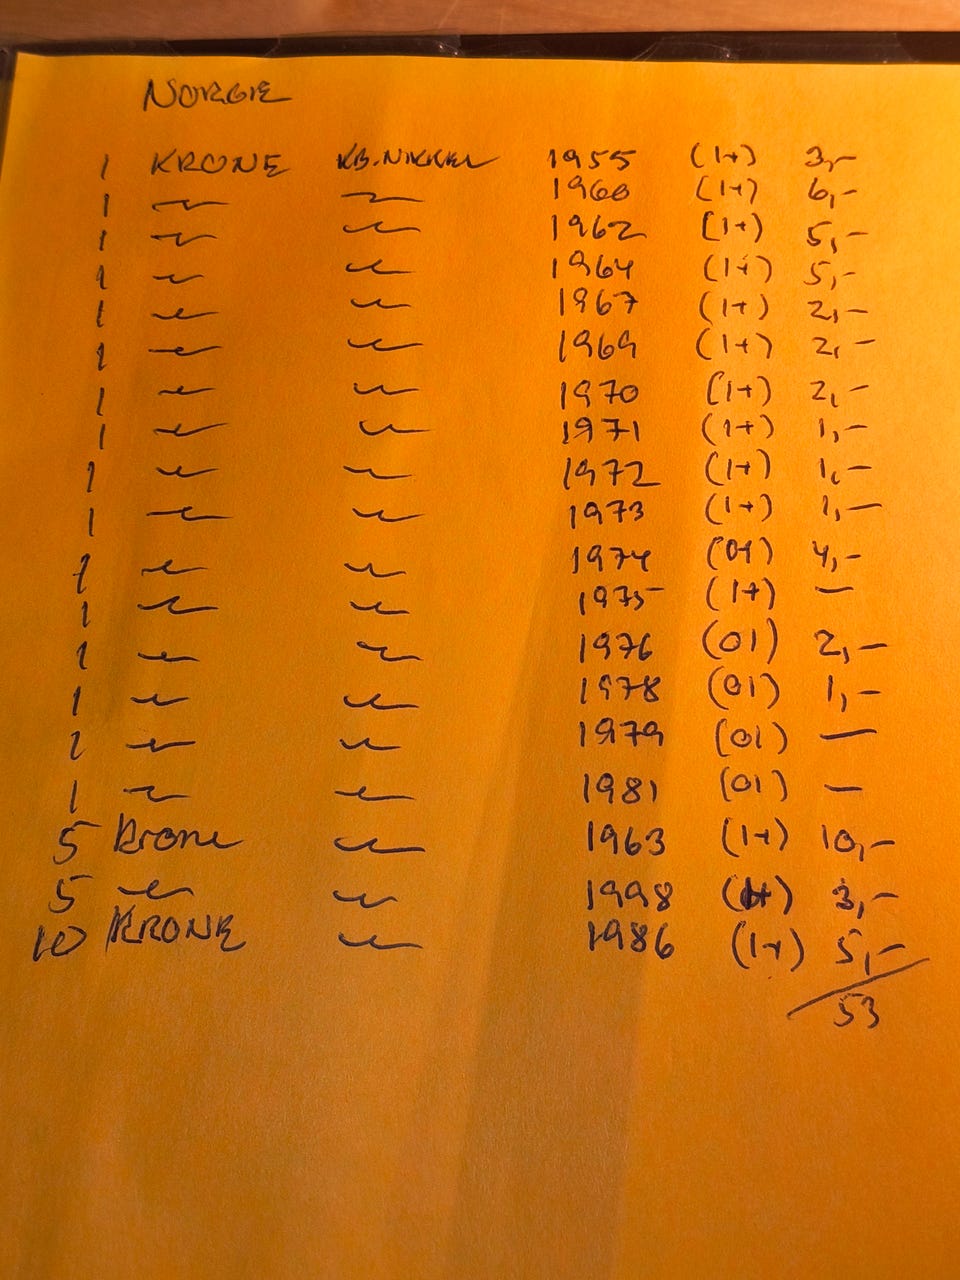 NORGE
1 KRONE KB.NIKKEL 1955 (1+) 3,-
1 〃 〃 1960 (1+) 6,-
1 〃 〃 1962 (1+) 5,-
1 〃 〃 1964 (1+) 5,-
1 〃 〃 1967 (1+) 2,-
1 〃 〃 1969 (1+) 2,-
1 〃 〃 1970 (1+) 2,-
1 〃 〃 1971 (1+) 1,-
1 〃 〃 1972 (1+) 1,-
1 〃 〃 1973 (1+) 1,-
1 〃 〃 1974 (01) 4,-
1 〃 〃 1975 (1+) —
1 〃 〃 1976 (01) 2,-
1 〃 〃 1978 (01) 1,-
1 〃 〃 1979 (01) —
1 〃 〃 1981 (01) —
5 Krone 〃 1963 (1+) 10,-
5 〃 〃 1998 3,-
10 KRONE 〃 1986 (1+) 5,-
53